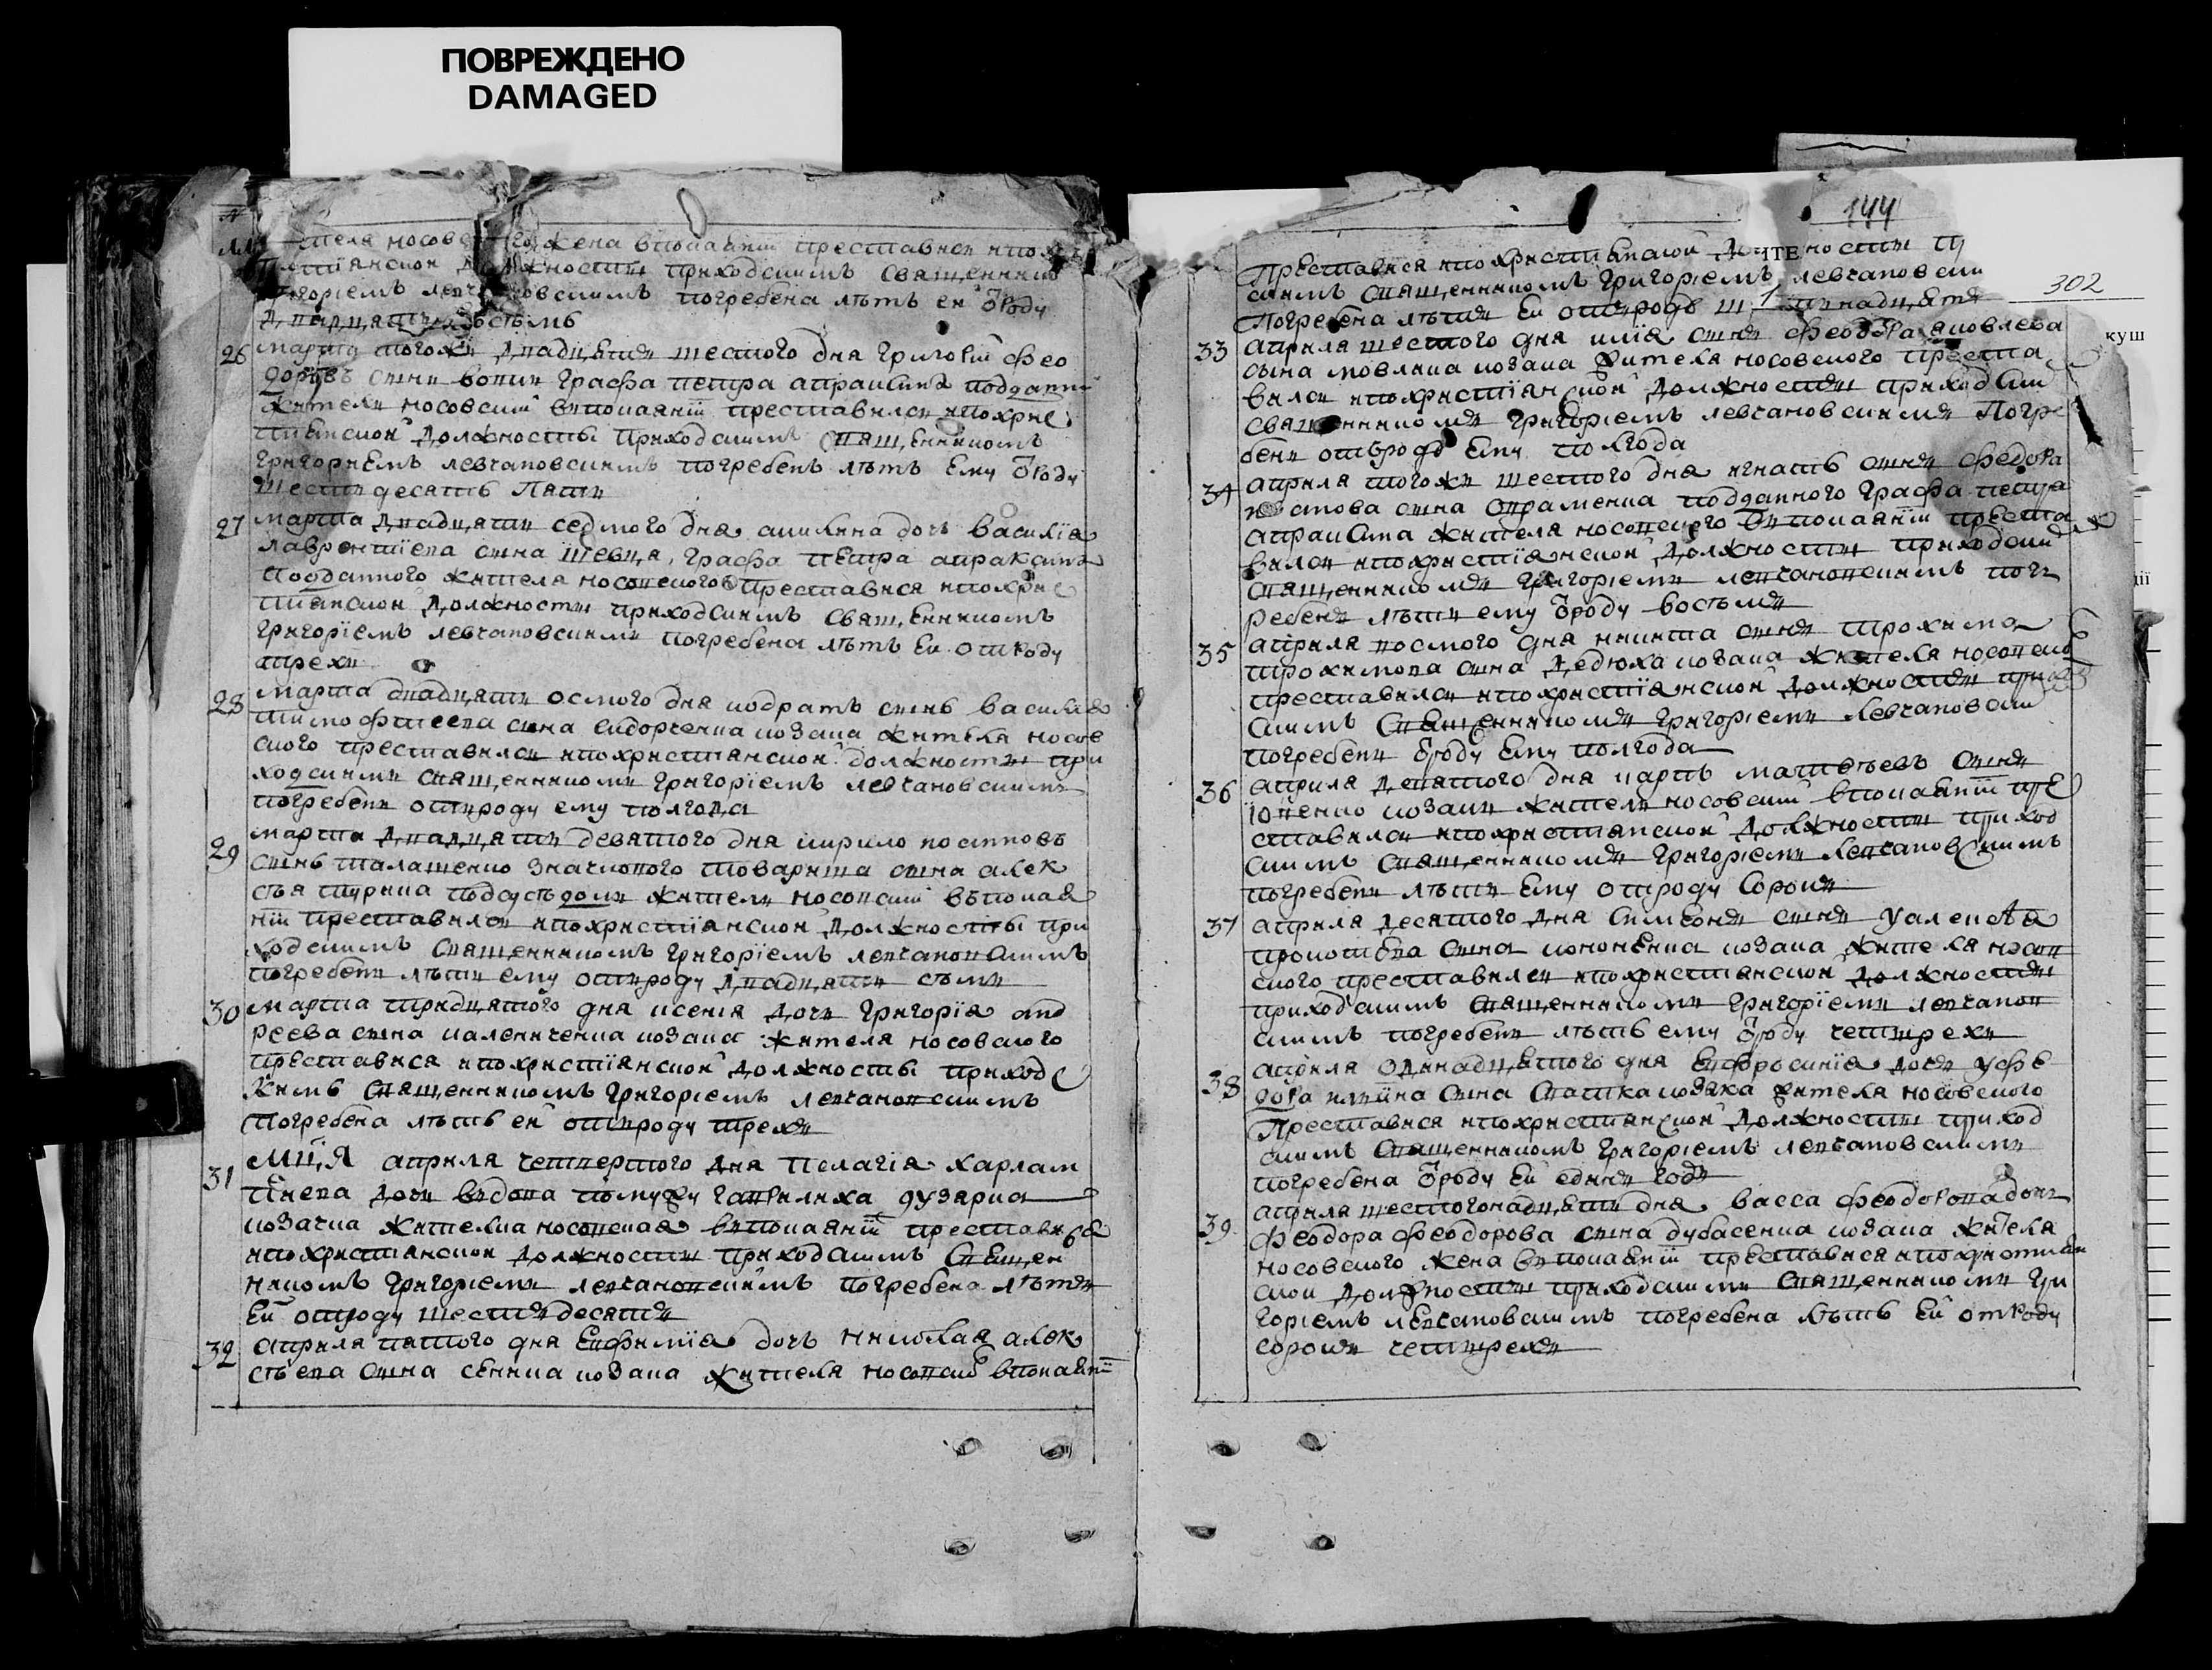 ПОВРЕЖДЕНО
DAMAGED
жена впокаяніи преставися
должности приходскимъ священником
погребена лѣтъ ей ѿроду
26 марта того ж двадцять шестого дня григорій фео
доровъ синъ графа петра апраксина подданий
житель носовский впокаяніи преставился похрис
тиянской должности приходскимъ священникомъ
григориемъ левчановскимъ погребенъ лѣтъ ему ѿроду
шестдесятъ пять
27 марта двадцять седмого дня дочъ василія
лаврентіева сина шевца, графа петра апраксина
подданного жителя носовского преставися похрис
тиянской должности приходскимъ священникомъ
григоріемъ левчановскимъ погребена лѣтъ ей отроду
трехъ
28 марта двадцять осмого дня кодратъ синъ василия
тимофиеева сина сидорченка козака жителя носов
ского преставился похристиянской должности при
ходскимъ священникомъ григоріемъ левчановскимъ
погребенъ отроду ему полгода
29 марта двадцять девятого дня кирило
синъ талашенко значкового товариша сина алек
сѣя подсусѣдокъ житель носовский въпокая
нии преставился похристіянской должности при
ходскимъ священникомъ григоріемъ левчановскимъ
погребенъ лѣтъ ему отроду двадцять сѣмъ
30 марта тридцятого дня ксенія дочъ григорія анд
реева сина калениченка козака жителя носовского
преставися похристіянской должности приходс
кимъ священникомъ григоріемъ левчановскимъ
погребена лѣтъ ей отъроду трехъ
31 мця априля четвертого дня пелагія харлам
пиева дочъ въдова помужу гаврилиха
козачка жителка носовская впокаяніи преставися
похристиянской должности приходскимъ священ
никомъ григоріемъ левчановскимъ погребена лѣтъ
ей отроду шестьдесятъ
32 априля пятого дня евфимія дочъ николая алек
сѣева сина козака жителя носовского впокаяніи
144
302
преставися похристиянской должности
скимъ священникомъ григоріемъ левчановским
погребена лѣтъ ей отъродъ
33 априля шестого дня илія синъ феодора яковлева
сына козака жителя носовского преста
вился похристіянской должности приходским
священникомъ григоріемъ левчановскимъ погре
бенъ отъродѣ ему полгода
34 априля того ж шестого дня игнатъ синъ федора
сина подданного графа петра
апраксина жителя носовского впокаяніи преста
вился похристіянской должности приходским
священникомъ григоріемъ левчановскимъ пог
ребенъ лѣтъ ему ѿроду восѣмъ
35 априля восмого дня никита синъ трохима
трохимова сина дедюха козака жителя носовско
преставился похристіянской должности приход
скимъ священникомъ григоріемъ левчановским
погребенъ ѿроду ему полгода
36 априля девятого дня карпъ матвѣевъ синъ
козакъ житель носовский впокаянїи пре
ставился похристиянской должности приход
скимъ священникомъ григоріемъ левчановскимъ
погребенъ лѣтъ ему отроду сорокъ
37 априля десятого дня симеонъ синъ
прокопѣва сина кононенка козака жителя носов
ского преставился похристиянской должности
приходскимъ священникомъ григоріемъ левчанов
скимъ погребенъ лѣтъ ему ѿроду четирехъ
38 априля одинадцятого дня евфросинія дочъ
сина козака жителя носовского
преставися похристиянской должности приход
скимъ священникомъ григоріемъ левчановскимъ
погребена ѿроду ей единъ годъ
39 априля шестогонадцять дня васса феодорова дочъ
феодора феодорова сина дубасенка козака жителя
носовского жена впокаяніи преставися похристиян
ской должности приходскимъ священникомъ гри
горіемъ левчановскимъ погребена лѣтъ ей отроду
сорокъ четирехъ